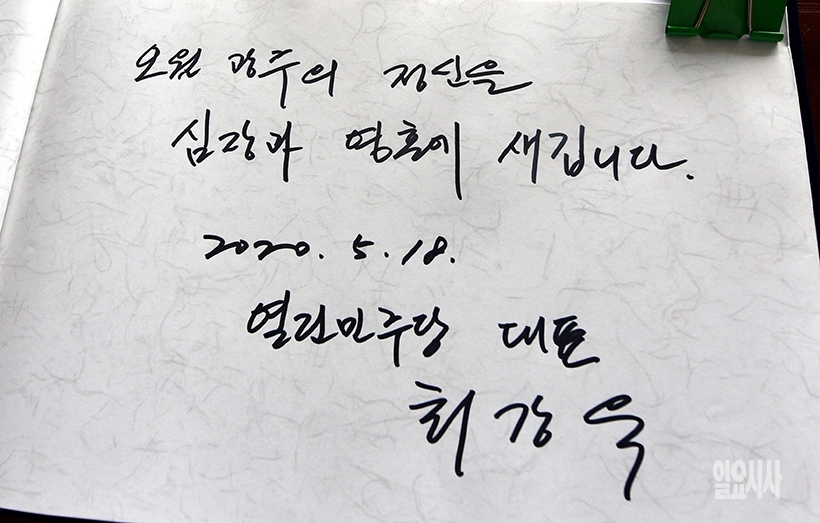 오월 광주의 정신을
심장과 영혼에 새깁니다.
2020. 5. 18.
열린민주당 대표
최강욱
일요시사